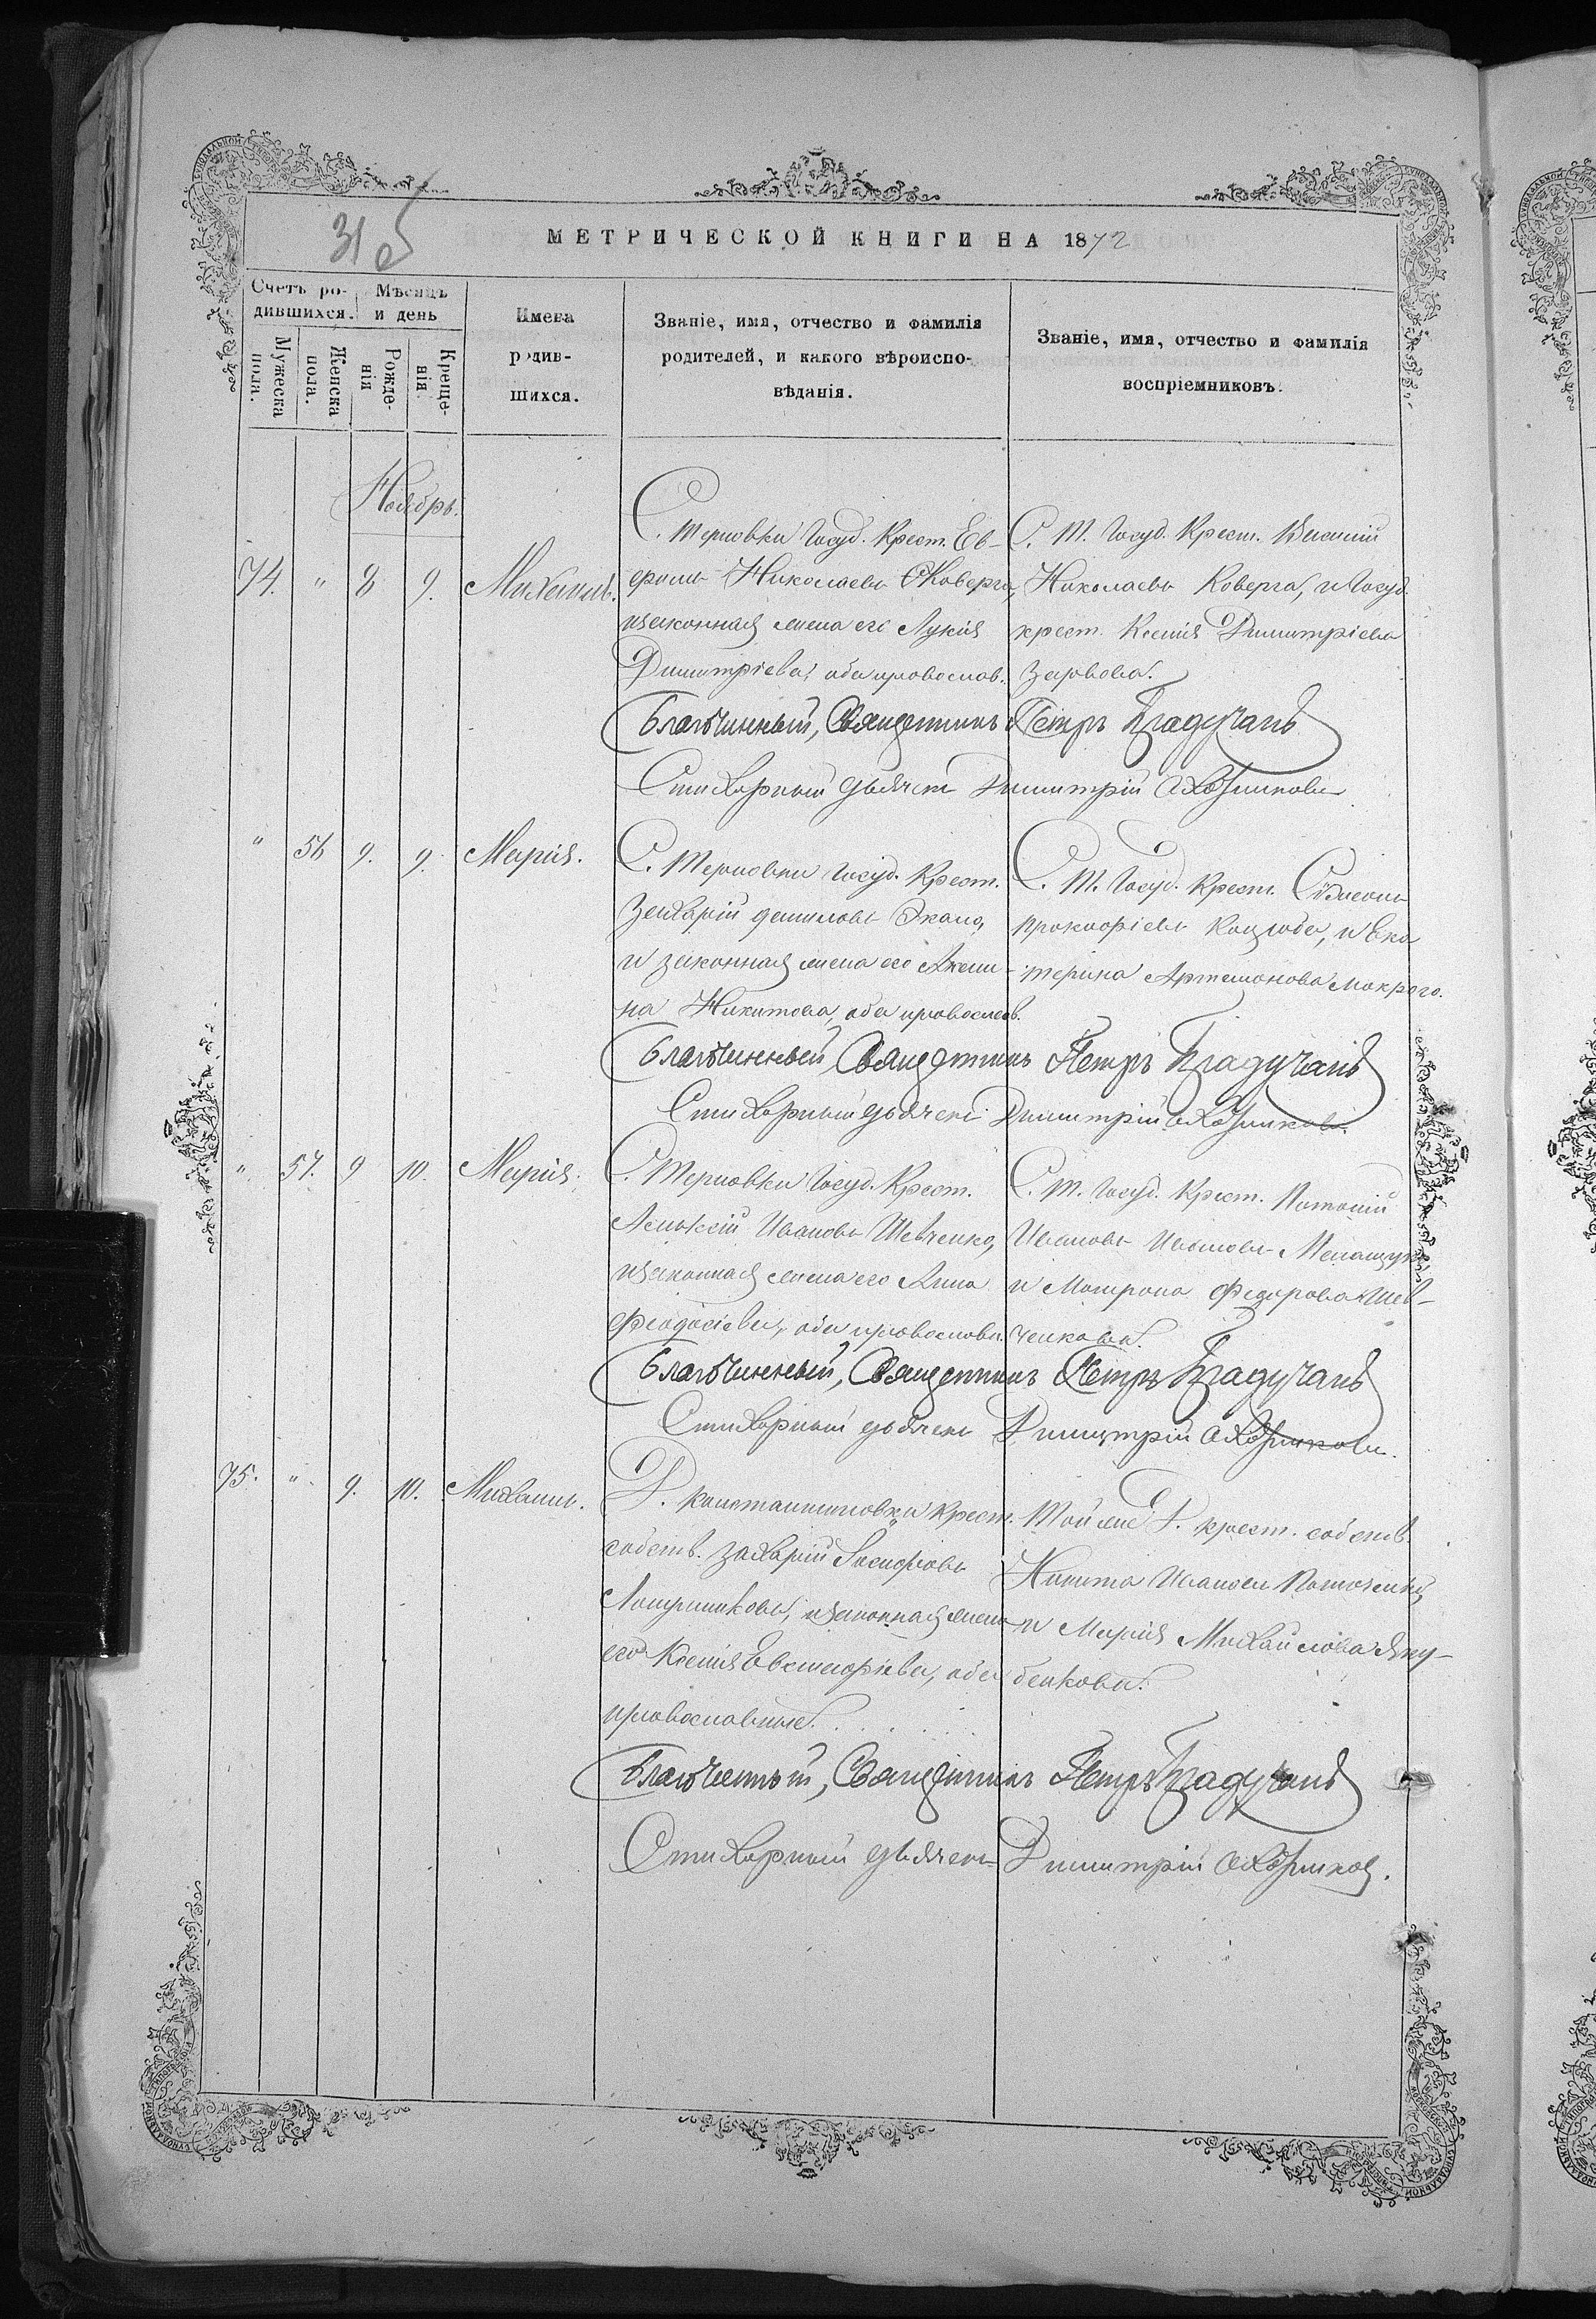 31 об
МЕТРИЧЕСКОЙ КНИГИ НА 1872
Счетъ ро-
дившихся.
Мѣсяцъ
и день
Мужеска
пола.
Женска
пола.
Рожде-
нія
Креще-
нія.
Имена
родив-
шихся.
Званіе, имя, отчество и фамилія
родителей, и какого вѣроиспо-
вѣданія.
Званіе, имя, отчество и фамилія
воспріемниковъ.
Ноябрь.
74. " 8 9. Михаилъ.
С. Терновки Госуд. Крест. Ев-
фимъ Николаевъ Коверга,
и законная жена его Лукія
Димитріева, оба православ.
С. Т. Госуд. Крест. Василій
Николаевъ Коверга, и Госуд.
крест. Ксенія Димитріева
Благочинный, Священникъ Петръ
Стихарный дьячекъ Димитрій
" 56 9. 9. Марія.
С. Терновки Госуд. Крест.
Захарій Даниловъ
и законная жена его Акили-
на Никитова, оба православ.
С. Т. Госуд. Крест. Симеонъ
Прокофіевъ Коцюба, и Ека
терина Артемонова Мокрого.
Благочинный, Священникъ Петръ
Стихарный дьячекъ Димитрій
" 57. 9 10. Марія.
С. Терновки Госуд. Крест.
Алексій Ивановъ Шевченко,
и законная жена его Анна
Феодосіева, оба православн.
С. Т. Госуд. Крест. Потапій
Ивановъ Ивановъ
и Матрона Федорова Шев-
ченкова.
Благочинный, Священникъ Петръ
Стихарный дьячекъ Димитрій
75. " 9. 10. Михаилъ.
Д. Константиновки Крест.
собств. Захарій Іосифовъ
и законная жена
его Ксенія Евстафіева, оба
православные.
Той же Д. крест. собств.
Никита Ивановъ
и Марія Михайлова Яку-
бенкова.
Благочинный, Священникъ Петръ
Стихарный дьячекъ Димитрій